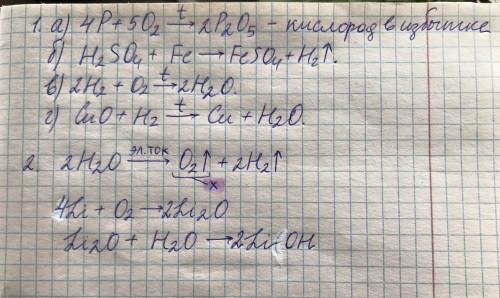 1. а) 4P + 5O2 t→ 2P2O5 - кислород в избытке
б) H2SO4 + Fe → FeSO4 + H2↑.
в) 2H2 + O2 t→ 2H2O.
г) CuO + H2 t→ Cu + H2O.
2. 2H2O эл.ток→ O2↑ + 2H2↑
x
4Li + O2 → 2Li2O
Li2O + H2O → 2LiOH